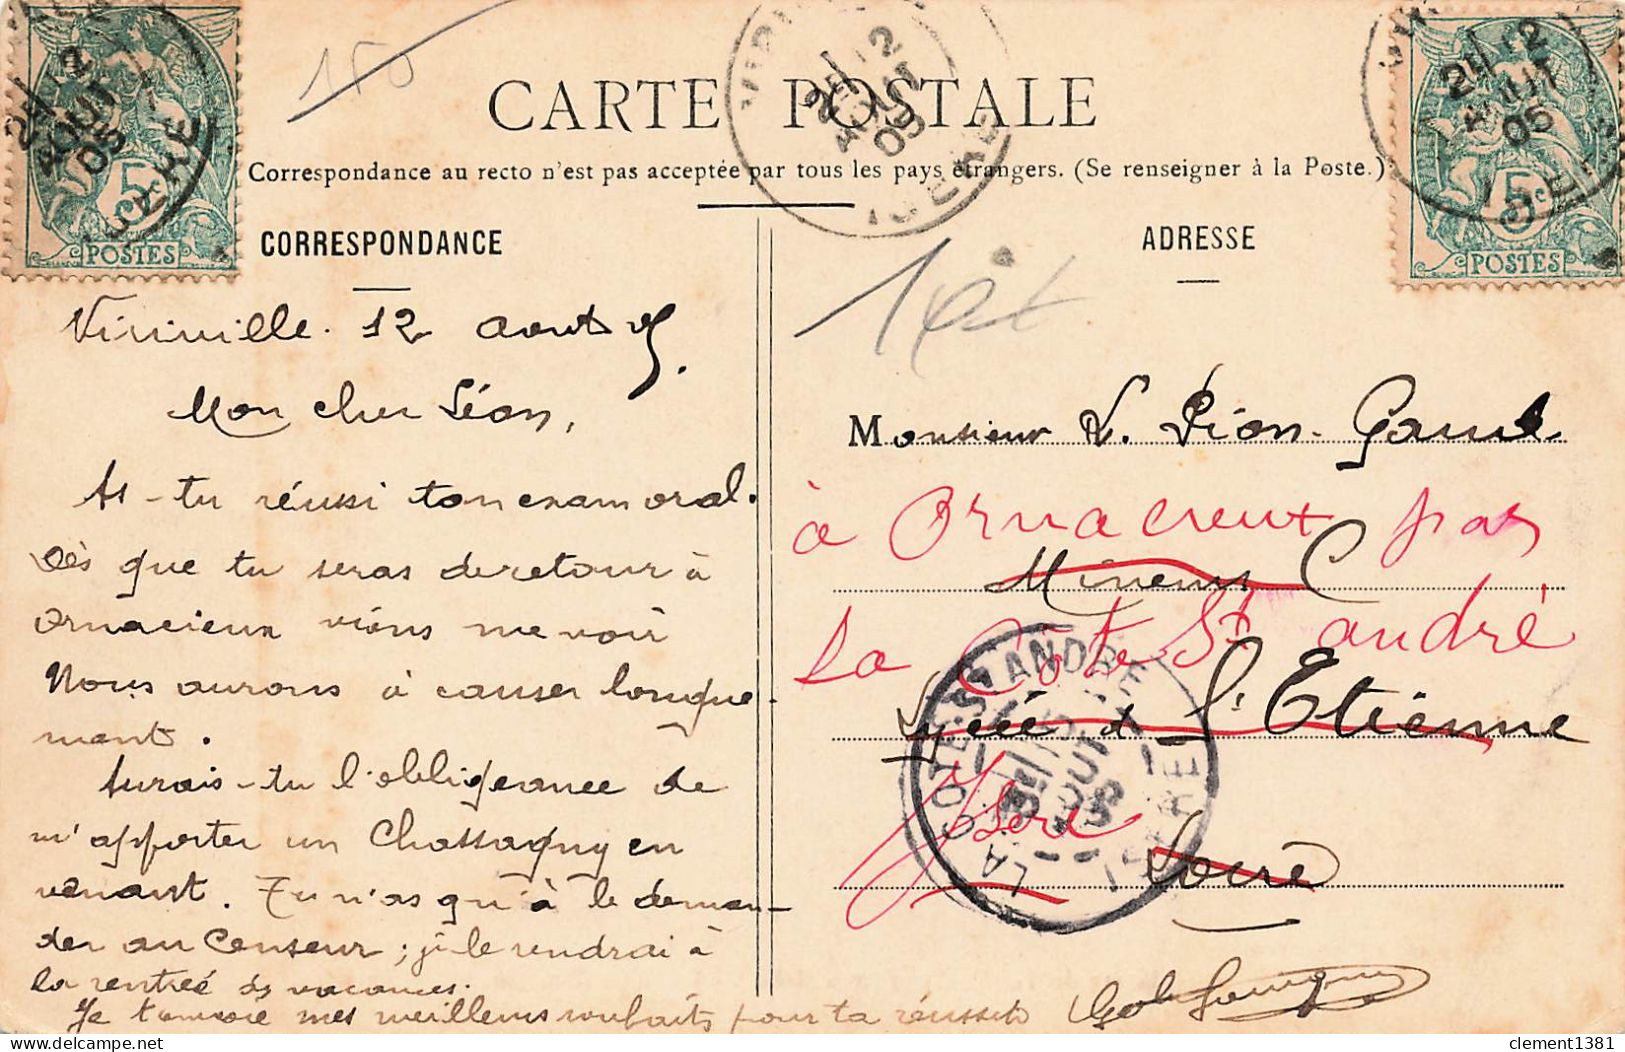 150
CARTE POSTALE
Correspondance au recto n'est pas acceptée par tous les pays étrangers. (Se renseigner à la Poste.)
CORRESPONDANCE
ADRESSE
5c
POSTES
5c
POSTES
12
AOUT
05
ISERE
12
AOUT
05
ISERE
12
AOUT
05
Viriville. 12 Aout 05.
Mon cher Léon,
As-tu réussi ton exam oral.
Dès que tu seras de retour à
Ornacieux viens me voir
Nous aurons à causer longue
ment.
Aurais-tu l'obligeance de
m'apporter un Chassagny en
venant. Tu n'as qu'à le deman-
der au Censeur ; je le rendrai à
la rentrée des vacances.
Je t'envoie mes meilleurs souhaits pour ta réussite
Monsieur L. Pion-
à Ornacieux par
Mineurs C
La Côte St andré
Lycée de St Etienne
Isère
Loire
LA COTE-ST ANDRE
AOUT
05
ISERE
clement1381